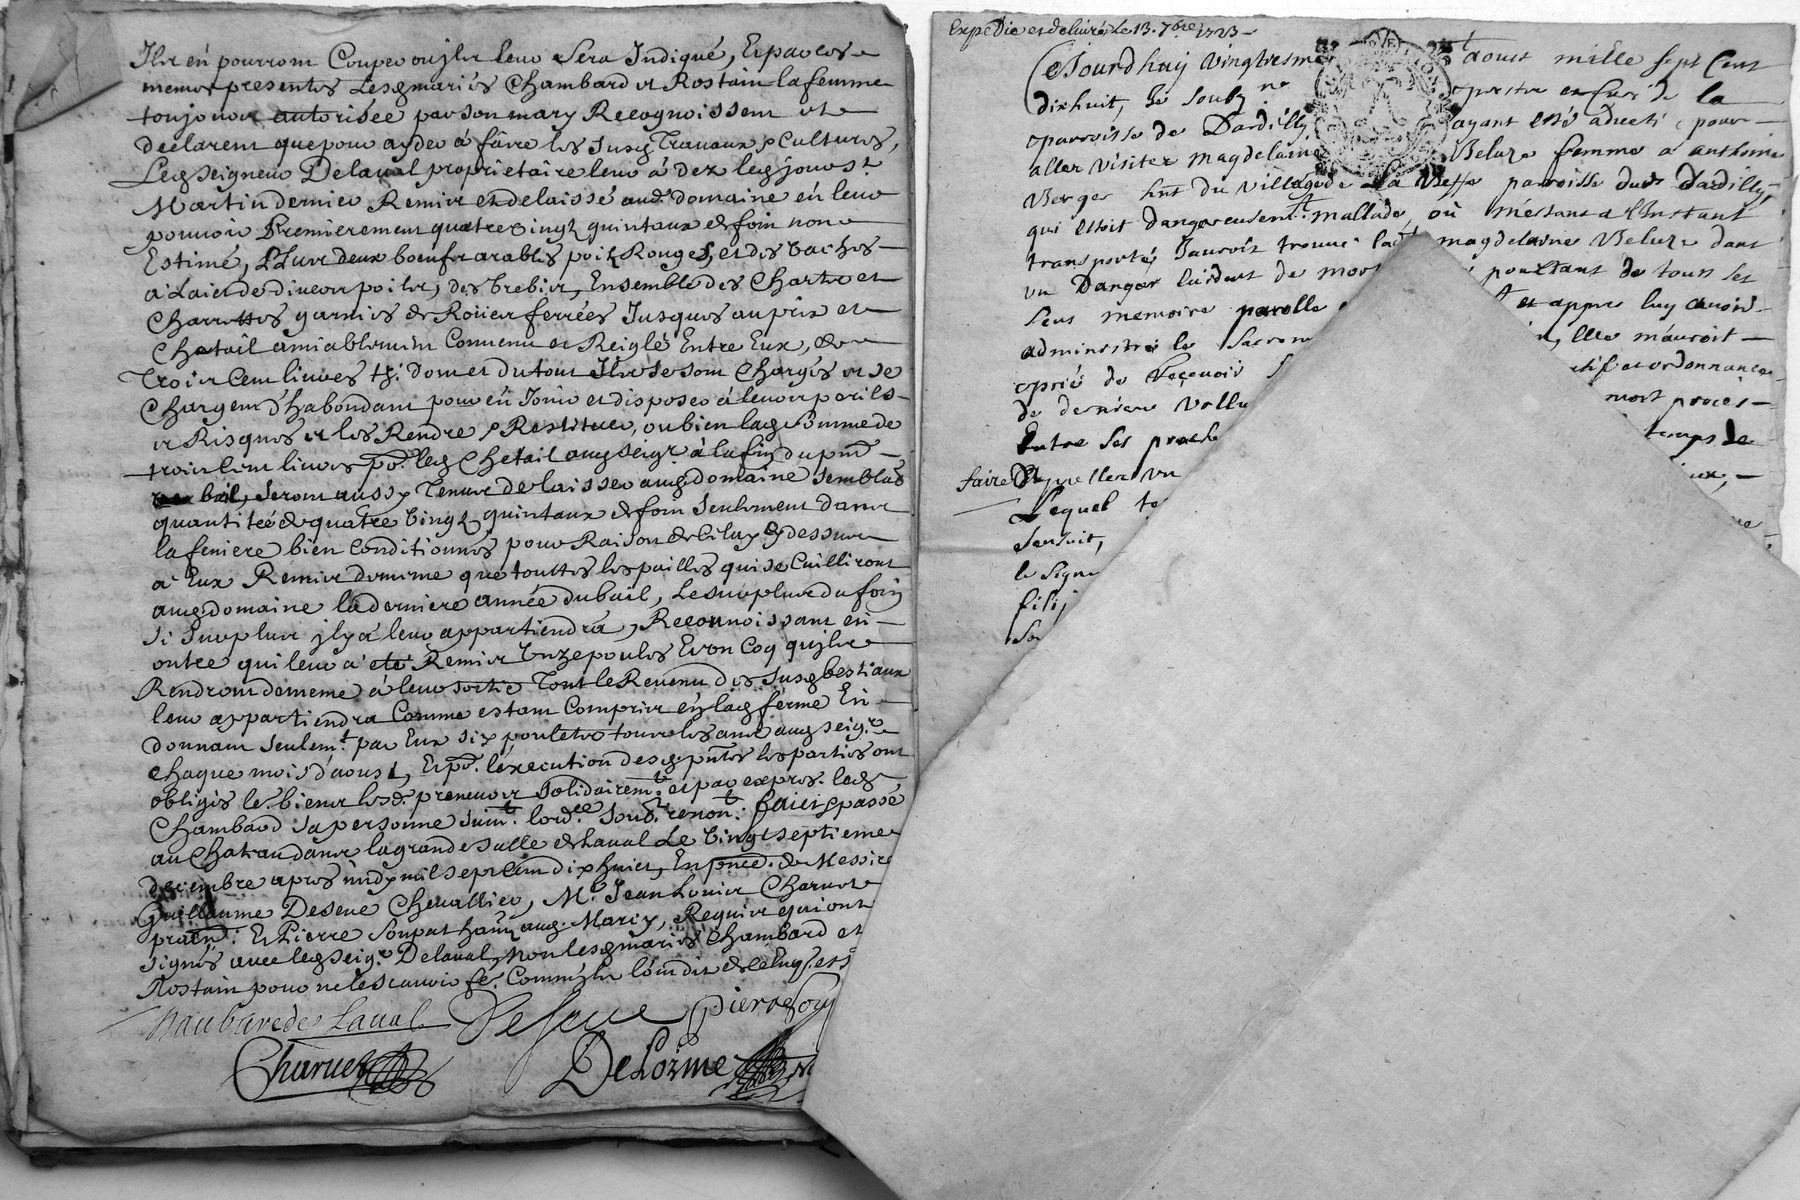 Ils en pourront Couper ou jls leur Sera Indiqué, Et par ces
memes presentes Lesg mariés Chambard et Rostain la femme
toujours autorisée par son mary Recognoissent et
declarent que pour ayder à faire les Susg Travaux & Cultures,
Ledg seigneur Delaval proprietaire leur à dez les jour St
Martin dernier Remis et delaissé aud. domaine en leur
pouvoir Premierement quatre vingt quintaux de foin non
Estimé, Plus deux boeufs arables poil Rouge, et des vaches
à Laict de divers poils, des brebis, Ensemble des Chars et
Charrettes garnies de Roües ferrées Jusques au prix et
Chetail amiablement Convenu et Reiglé Entre Eux, de
Trois Cent livres dont et du tout Ils se sont Chargés et se
Chargent d'habondant pour en Jouir et disposer à leurs perils
et Risques et les Rendre & Restituer, ou bien lad Somme de
trois Cent livres po. led Chetail aud seigr. à la fin du pnt
bail, seront aussy Tenus delaisser aud domaine semblable
quantiteé de quatre vingt quintaux de foin seulement dans
la feniere bien Conditionnés pour Raison de Celuy Cy dessus
à Eux Remis de mime que touttes les pailles qui se Cuilliront
aud domaine la derniere année du bail, Le surplus du foin
si surplus jl y à leur appartiendra, Reconnoissant en
outre qui leur à eté Remis Unze poules Et un Coq qu'jls
Rendront de meme à leur sortie Tout le Revenu des Susg bestiaux
leur appartiendra Comme estant Compris en lad ferme En
donnant seulemt. par Eux six poulets tous les ans aud seigr.
chaque mois d'aoust, Et po. l'execution desg. pntes les parties ont
obligés les biens lesd. preneurs Solidairemt. et par expres. led
Chambard sa personne renont: faict & passé
au Chateau dans la grande salle de Laval Le vingt septieme
decembre apres midy mil sept Cent dix huict, En pnce. de Messire
Guillaume Deseve Chevallier, Mr. Jean Louis Charvet
praen: Et Pierre Soupat aud. Marcy, Requis qui ont
signés avec led seigr. Delaval, Non lesg mariés Chambard et
Rostain pour ne le scavoir fe. Comm'jls l'ont dit de
de Laval Deseve pierre Sou
Charvet DeLorme
Expedié et delivré le 13. 7bre 1723
Cejourdhuy vingtiesme aoust mille sept Cent
dixhuit, je soubz ne prestre et Curé de la
parroisse de Dardilly ayant esté adverti pour
aller visiter magdelaine Beluze femme a anthoine
Berger hnt du village de La Beffe parroisse dud Dardilly,
qui estoit dangereusemt. mallade, où m'estant a l'Instant
transporté Jaurois trouvé lad magdelaine Beluze dans
un Danger Evident de mort pourtant de tous ses
sens memoire parolle et appres luy avoir
administré le Sacrem elle m'auroit
prié de Recevoir et ordonnance
de derniere Vollo mort procès
Entre ses proche temps de
faire appeller un
Lequel te
sensuit,
le signe
fils,